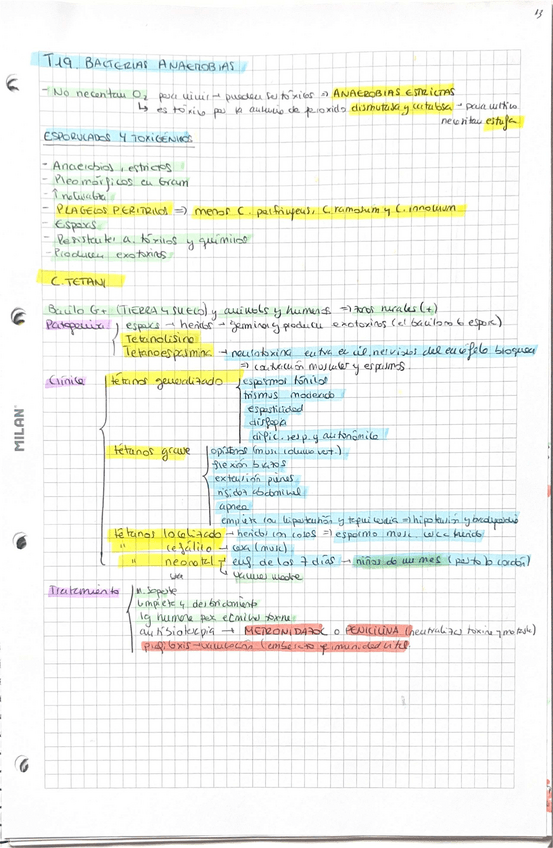 13
T19. BACTERIAS ANAEROBIAS
- No necesitan O2 para vivir → pueden ser tóxicos ⇒ ANAEROBIAS ESTRICTAS
↳ es tóxico por la ausencia de peróxido dismutasa y catalasa → para cultivo
necesitan estufa
ESPORULADOS Y TOXIGÉNICOS
- Anaerobios estrictos
- Pleomórficos en Gram
- PLAGELOS PERITRICOS ⇒ menos C. perfringens, C. ramosum y C. innocuum
- Esporas
- Resistente a. tóxicos y químicos
- Producen exotoxinas
C. TETANI
Bacilo G+ (TIERRA Y SUELO) y animales y humanos ⇒ zonas rurales (+)
Patogenia
esporas → heridas → germinan y producen exotoxinas (el bacilo no la espora)
Tetanolisina
Tetanoespasmina → neurotoxina entra en cél. nerviosas del encéfalo bloquea
⇒ contracción muscular y espasmos
Clínica
tétanos generalizado
espasmos tónicos
trismus moderado
espasticidad
disfagia
dific. resp. y autonómica
tétanos grave
opistótonos (musc columna vert.)
flexión brazos
extensión piernas
rigidez abdominal
apnea
empieza con hipertensión y taquicardia ⇒ hipotensión y bradicardia
tétanos localizado → heridas ⇒ espasmo musc. cerca herida
" cefálico → cara (musc)
" neonatal → enf de los 7 días → niños de un mes (
↳ vacunar madre
Tratamiento
m. soporte
limpieza y desbridamiento
Ig humana
antibioterapia → METRONIDAZOL o PENICILINA (neutraliza toxina
profilaxis → vacunación (embarazo
MILAN